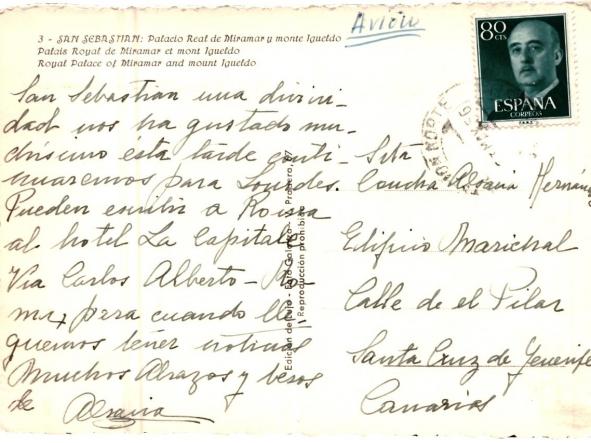 Avión
3 - SAN SEBASTIAN: Palacio Real de Miramar y monte Igueldo
Palais Royal de Miramar et mont Igueldo
Royal Palace of Miramar and mount Igueldo
80 CTS
ESPAÑA
CORREOS
San Sebastian una divini-
dad nos ha gustado mu-
chisimo esta tarde conti-
nuaremos para Lourdes.
Pueden escribir a Roma
al hotel La Capitale
Via Carlos Alberto - Ro-
ma, para cuando lle-
guemos tener noticias
Muchos Abrazos y besos
de
Edición de lujo - Foto Galarza - Prohero, 67
Reproducción prohibida
Srta
Concha Hernández
Edificio Marichal
Calle de el Pilar
Santa Cruz de Tenerife
Canarias